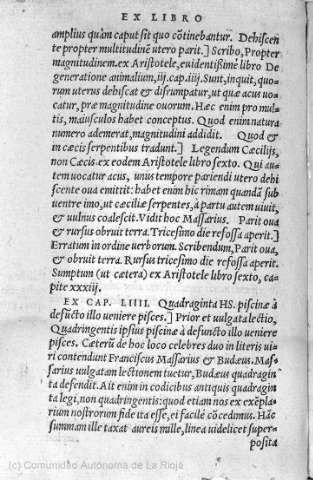 EX LIBRO
amplius quàm caput sit quo cõtinebantur. Dehiscen
te propter multitudinẽ utero parit.] Scribo, Propter
magnitudinem. ex Aristotele, euidẽtißimẽ libro De
generatione animalium, iij. cap. iiij. Sunt, inquit, quo-
rum uterus dehiscat & disrumpatur, ut quæ acus uo-
catur, præ magnitudine ouorum. Hæc enim pro mul-
tis, maiusculos habet conceptus. Quod enim natura
numero ademerat, magnitudini addidit. Quod &
in cæcis serpentibus tradunt.] Legendum Cæcilijs,
non Cæcis. ex eodem Aristotele libro sexto. Qui au-
tem uocatur acus, unus tempore pariendi utero dehi
scente oua emittit: habet enim hic rimam quandã sub
uentre imo, ut cæciliæ serpentes, à partu autem uiuit,
& uulnus coalescit. Vidit hoc Massarius. Parit oua
& rursus obruit terra. Tricesimo die refossa aperit.]
Erratum in ordine uerborum. Scribendum, Parit oua,
& obruit terra. Rursus tricesimo die refossa aperit.
Sumptum (ut cætera) ex Aristotele libro sexto, ca-
pite xxxiij.
EX CAP. LIIII. Quadraginta HS. piscinæ à
defũcto illo ueniere pisces.] Prior et uulgata lectio,
Quadringentis ipsius piscinæ à defuncto illo ueniere
pisces. Cæterũ de hoc loco celebres duo in literis ui-
ri contendunt Franciscus Massarius & Budæus. Mas
sarius uulgatam lectionem tuetur, Budæus quadragin
ta defendit. Ait enim in codicibus antiquis quadragin
ta legi, non quadringenta: quod etiam nos ex exẽpla-
rium nostrorum fide ita esse, ei facilè cõcedimus. Hãc
summam ille taxat aureis mille, linea uidelicet super-
posita
(c) Comunidad Autónoma de La Rioja